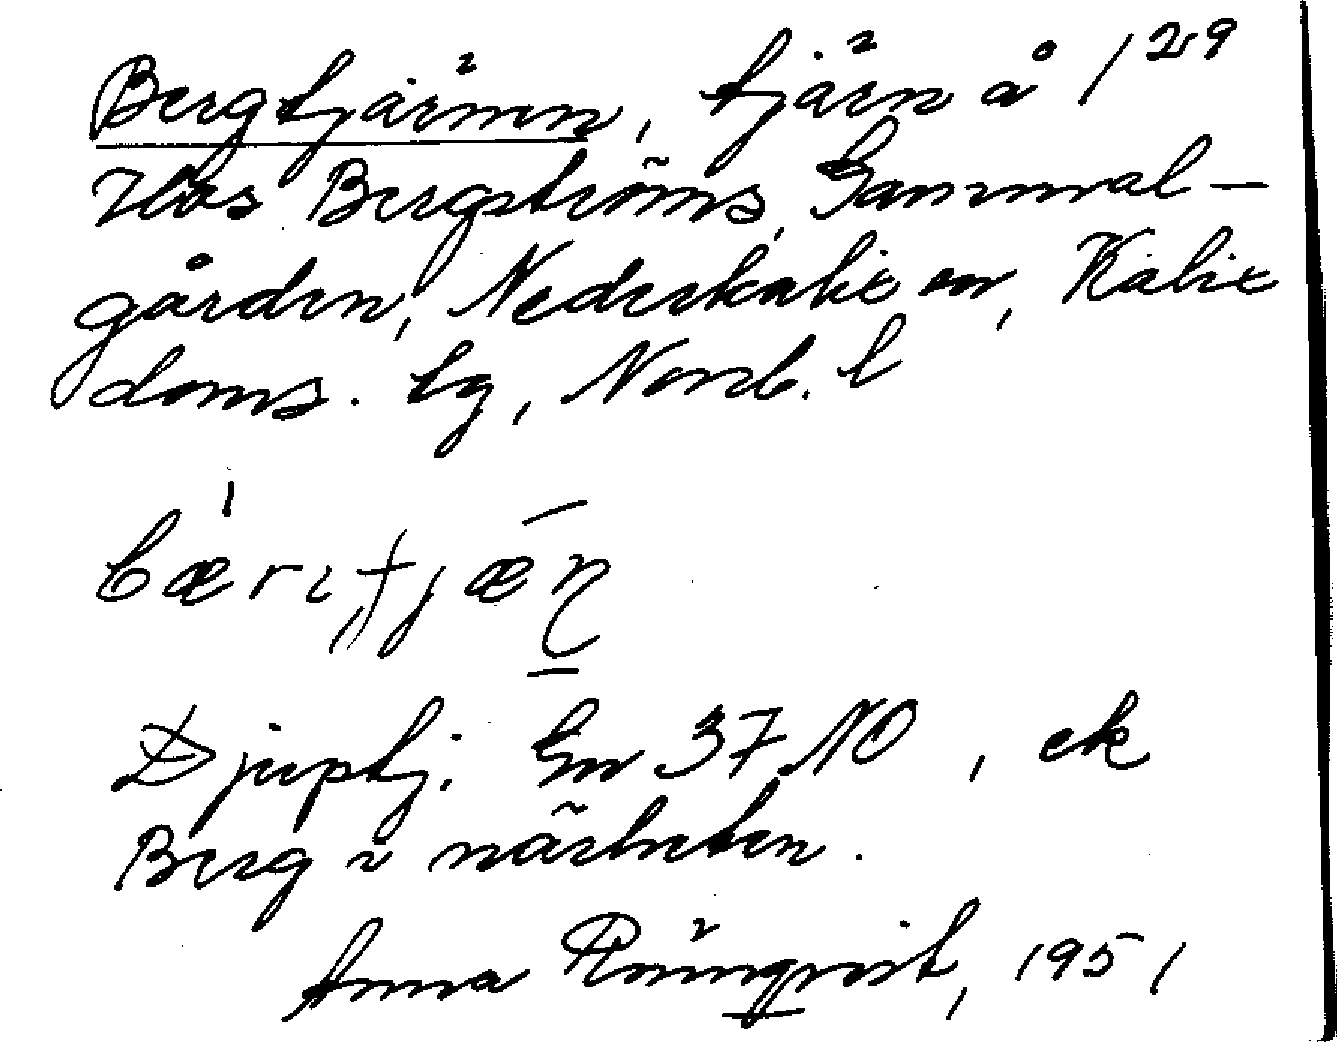 Bergtjärnen, tjärn å 1²⁹
Hos Bergströms, Gammal-
gården, Nederkalix sn, Kalix
doms. tg, Norrb. l
Djuptj. Gn 37 NO, ek
Berg i närheten.
Anna Rönnqvist, 1951